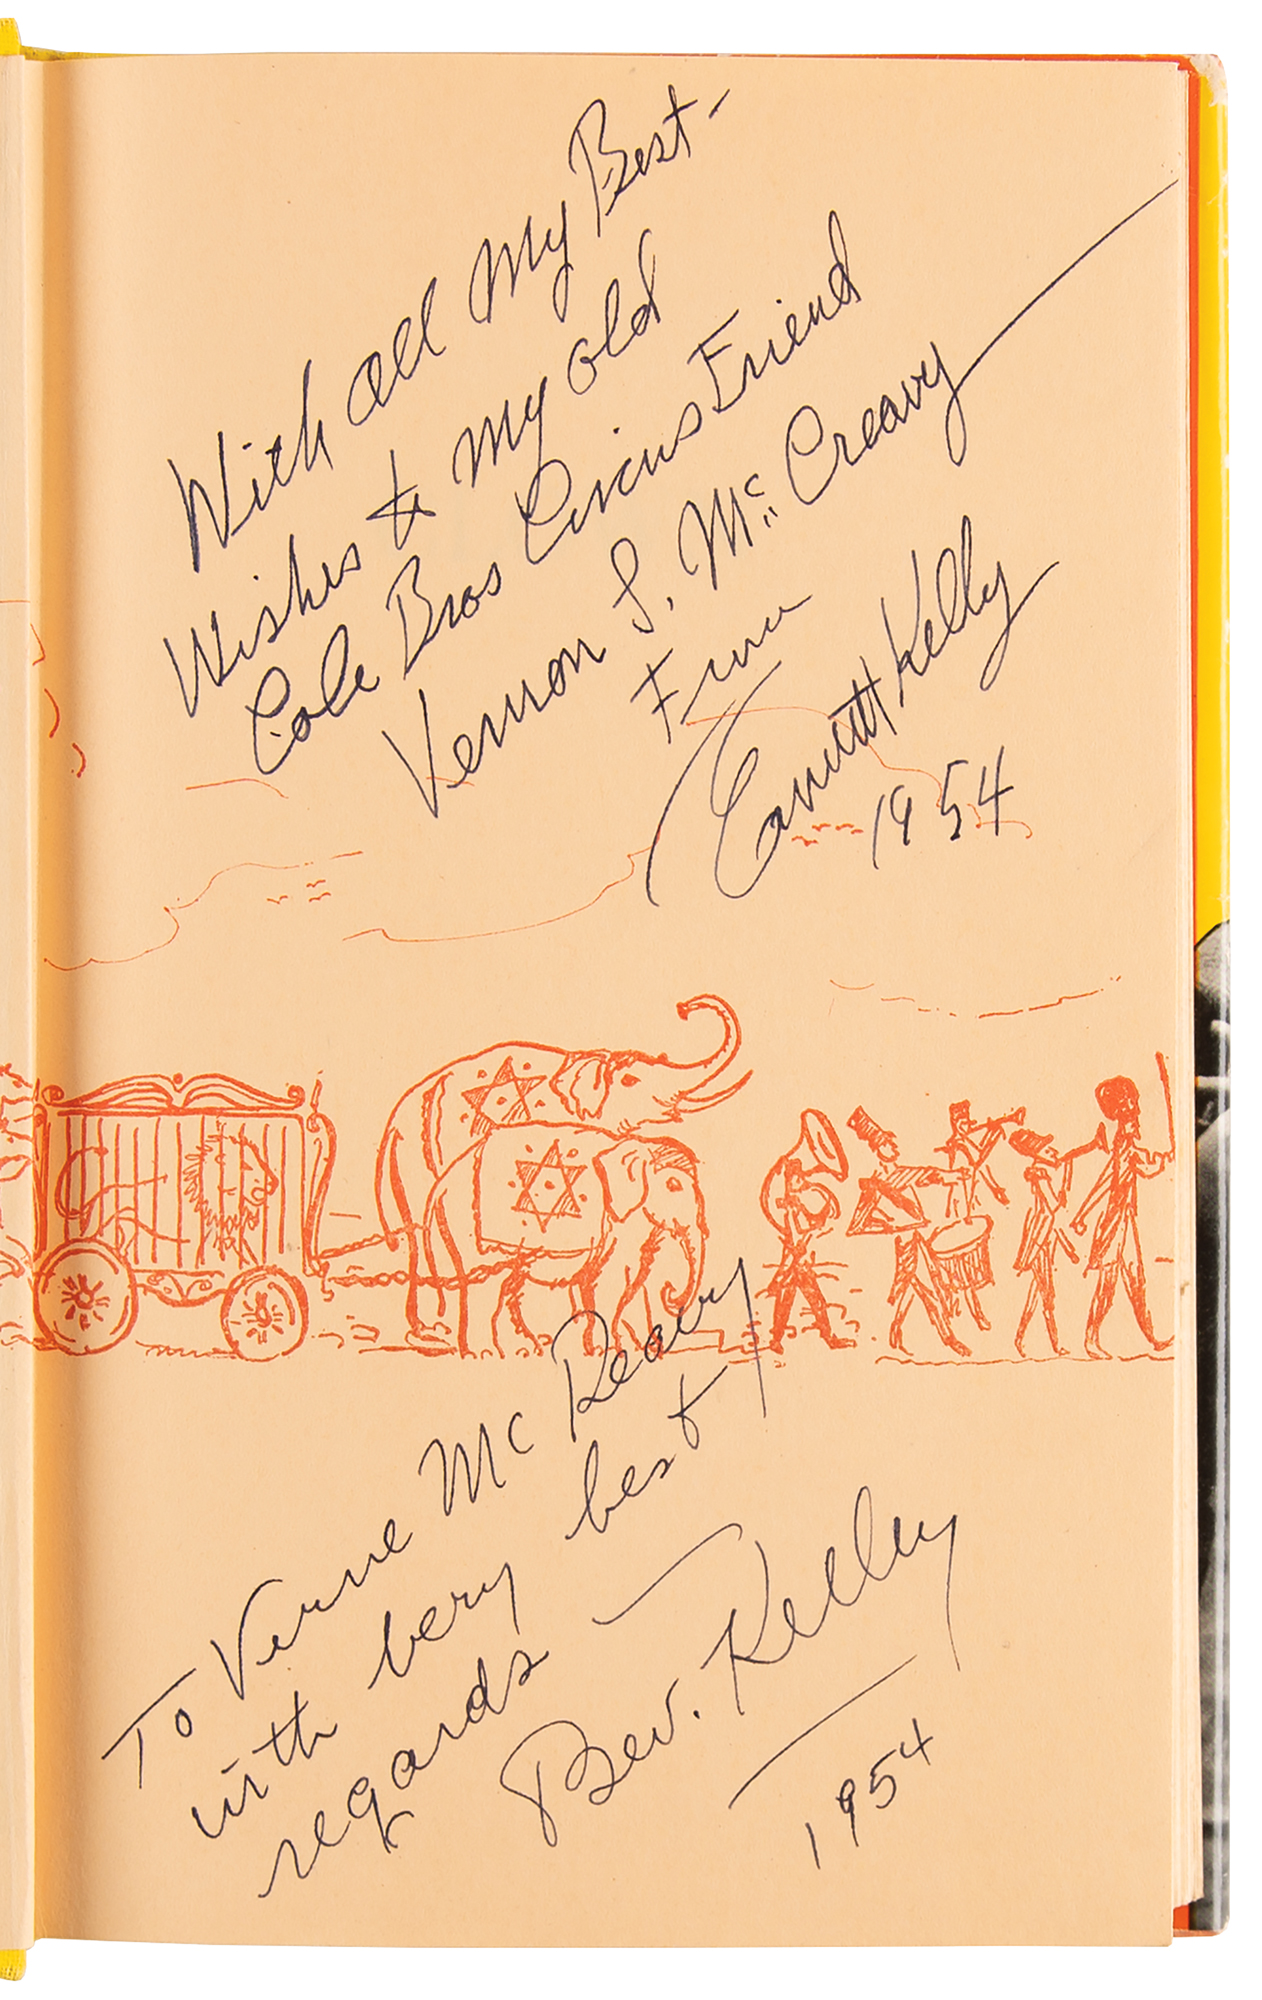 With all My Best-
Wishes to My old
Cole Bros Circus Friend
Vernon S. Mc Creavy
From
Emmett Kelly
1954
To Verne McReavy
with very best
regards —
Bev. Kelley
1954